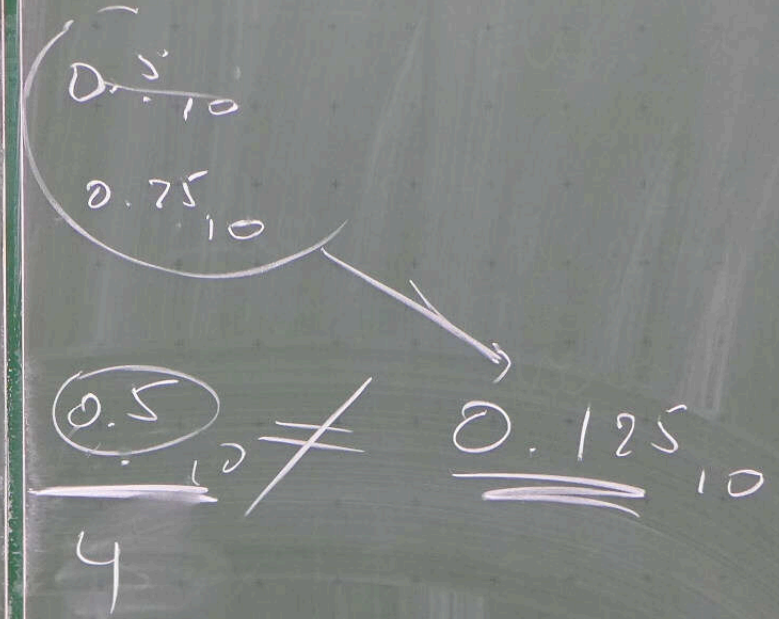 0.5₁₀
0.75₁₀
0.5₁₀ / 4 ≠ 0.125₁₀